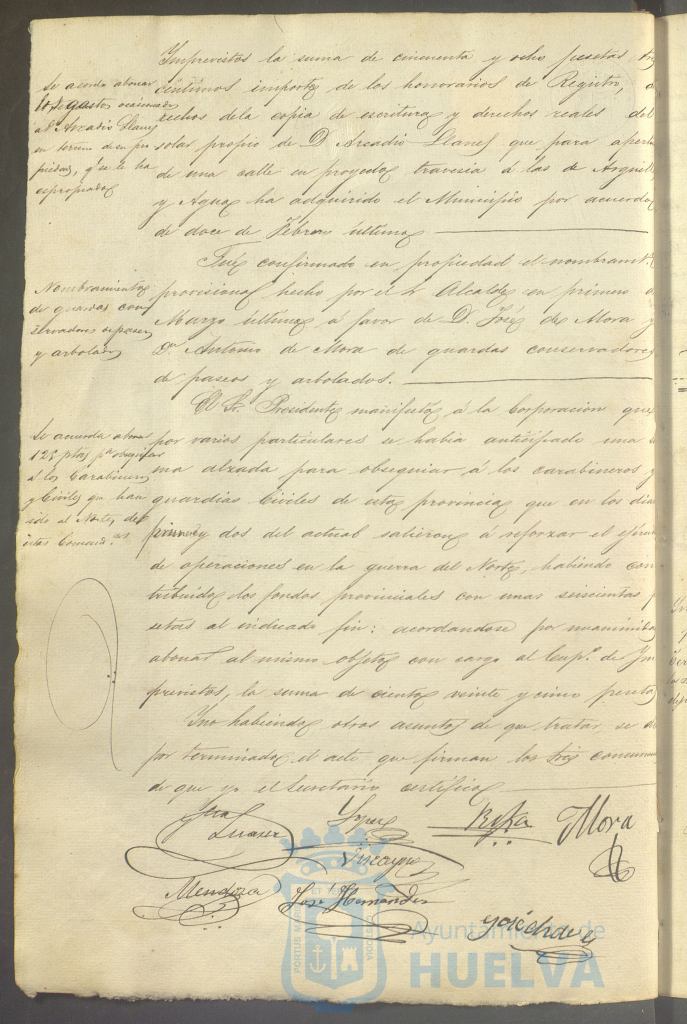 Imprevistos la suma de cincuenta y ocho pesetas
céntimos importe de los honorarios de Registro, de
rechos de la copia de escritura y derechos reales del
solar propio de D Arcadio Llanes que para apert
de una calle en proyecto travesia á las de Argui
y Agua ha adquirido el Municipio por acuerdo
de doce de Febrero último
Se acordo abonar
los gastos ocasionados
a D. Arcadio Llanes
piedad, que se le ha
espropiado
Fué confirmado en propiedad el nombramto
provisional hecho por el Sr Alcalde en primero
Marzo último á favor de D. José de Mora y
Dn Antonio de Mora de guardas conservadores
de paseos y arbolados.
Nombramientos
de guardas con
servadores de paseos
y arbolados
El Sr. Presidente manifestó á la Corporacion que
por varios particulares se habia anticipado una
ma alzada para obsequiar á los carabineros y
guardias Civiles de esta provincia que en los dias
primero y dos del actual salieron á reforzar el ejérci
de operaciones en la guerra del Norte, habiendo con
tribuido los fondos provinciales con unas seiscientas p
setas al indicado fin: acordandose por unanimida
abonar al mismo objeto con cargo al Cap.º de Im
previstos, la suma de ciento veinte y cinco peseta
Se acuerda abonar
125 ptas pª obsequiar
á los Carabineros
y Civiles que han
ido al Norte, de
estas Comand.as
Y no habiendo otros asuntos de que tratar, se
por terminado el acto que firman los Sres concurren
de que yo el Secretario certifico
Suarez
Lopez
Mora
Vizcayno
Mendoza
José Hernandez
Ayuntamiento de
HUELVA
PORTUS MARIS